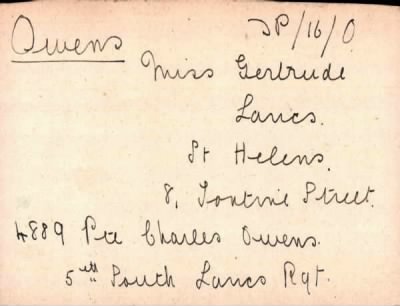 Owens
SP/16/0
Miss Gertrude
Lancs.
St Helens.
8, Tontine Street.
4889 Pte Charles Owens.
5th South Lancs Rgt.